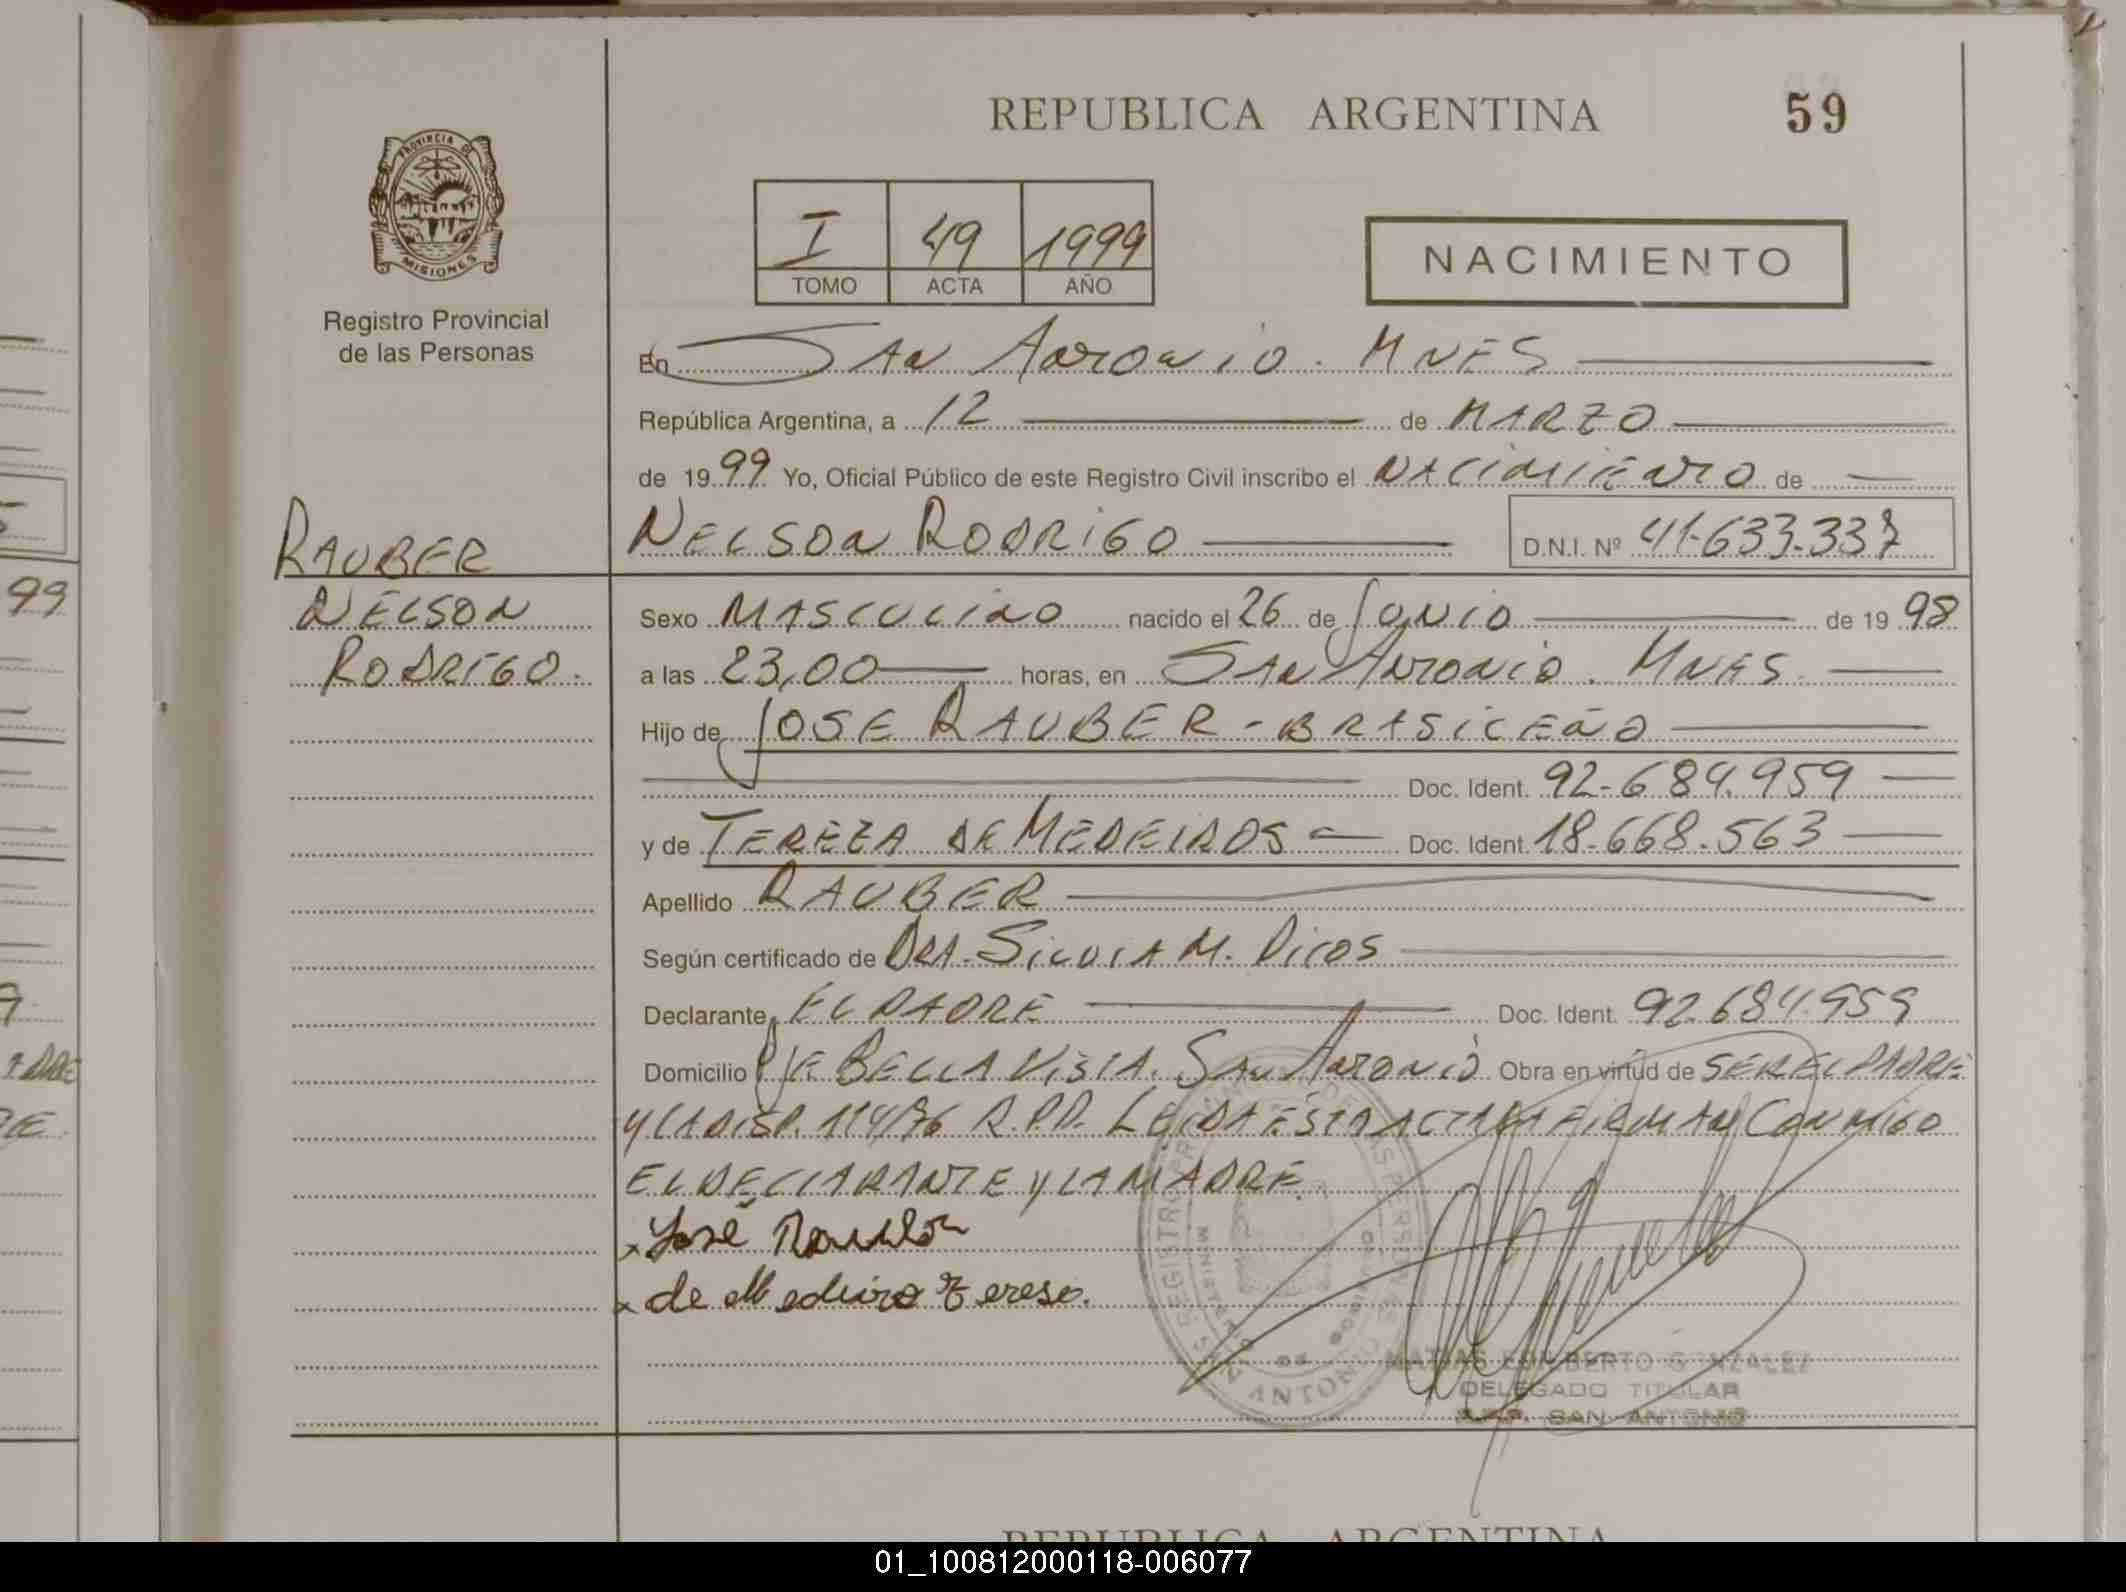 REPUBLICA ARGENTINA
59
PROVINCIA DE
MISIONES
Registro Provincial
de las Personas
I 49 1999
TOMO ACTA AÑO
NACIMIENTO
En SAN ANTONIO. MNES
República Argentina, a 12 de MARZO
de 1999 Yo, Oficial Público de este Registro Civil inscribo el NACIMIENTO de
NELSON RODRIGO D.N.I. Nº 41.633.337
RAUBER
NELSON
RODRIGO.
Sexo MASCULINO nacido el 26 de JUNIO de 1998
a las 23,00 horas, en SAN ANTONIO. MNES
Hijo de JOSE RAUBER - BRASILEÑO
Doc. Ident. 92-684.959
y de TEREZA DE MEDEIROS Doc. Ident. 18.668.563
Apellido RAUBER
Según certificado de DRA. SILVIA M.
Declarante EL PADRE Doc. Ident. 92.684.959
Domicilio BELLA VISTA. SAN ANTONIO Obra en virtud de SER EL PADRE
Y LA DISP. 114/96 R.P.P. LEIDA ESTA ACTA LA FIRMAN CONMIGO
EL DECLARANTE Y LA MADRE.
x José
x de Medeiro Tereso.
REGISTRO DE LAS PERSONAS
MINISTERIO DE GOBIERNO
SAN ANTONIO
MATIAS EDILBERTO GONZALEZ
DELEGADO TITULAR
R.P.P. SAN ANTONIO
99
REPUBLICA ARGENTINA
01_100812000118-006077